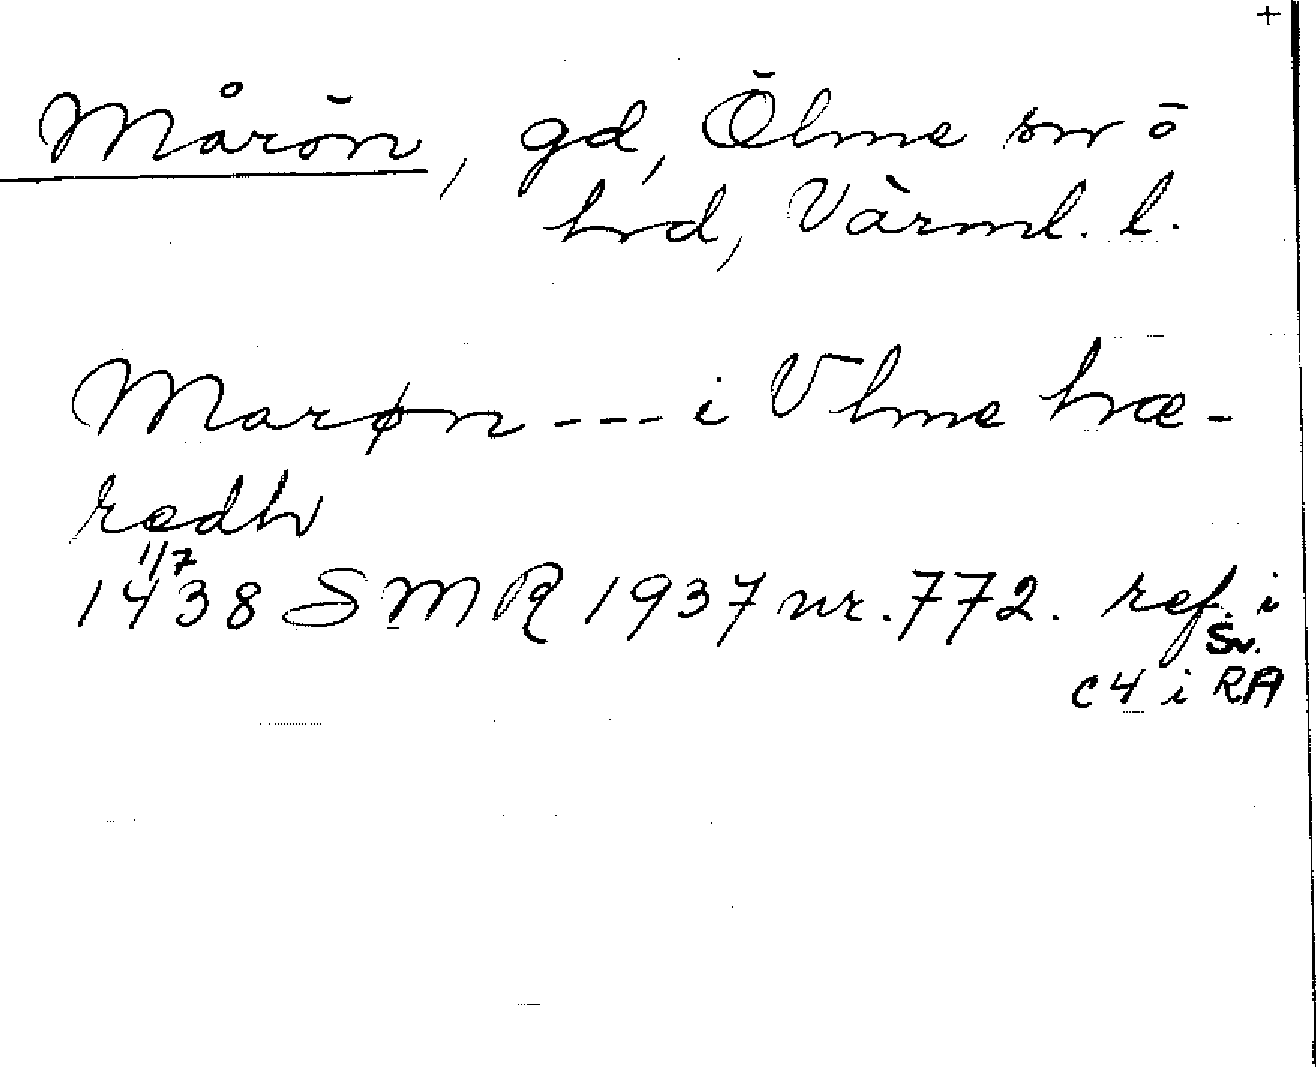 +
Mårön, gd, Ölme sn o
hd, Värml. l.
Marøn --- i Vlme hæ-
redh
1/7
1438 SMR 1937 nr. 772. ref. i
Sv.
C4 i RA